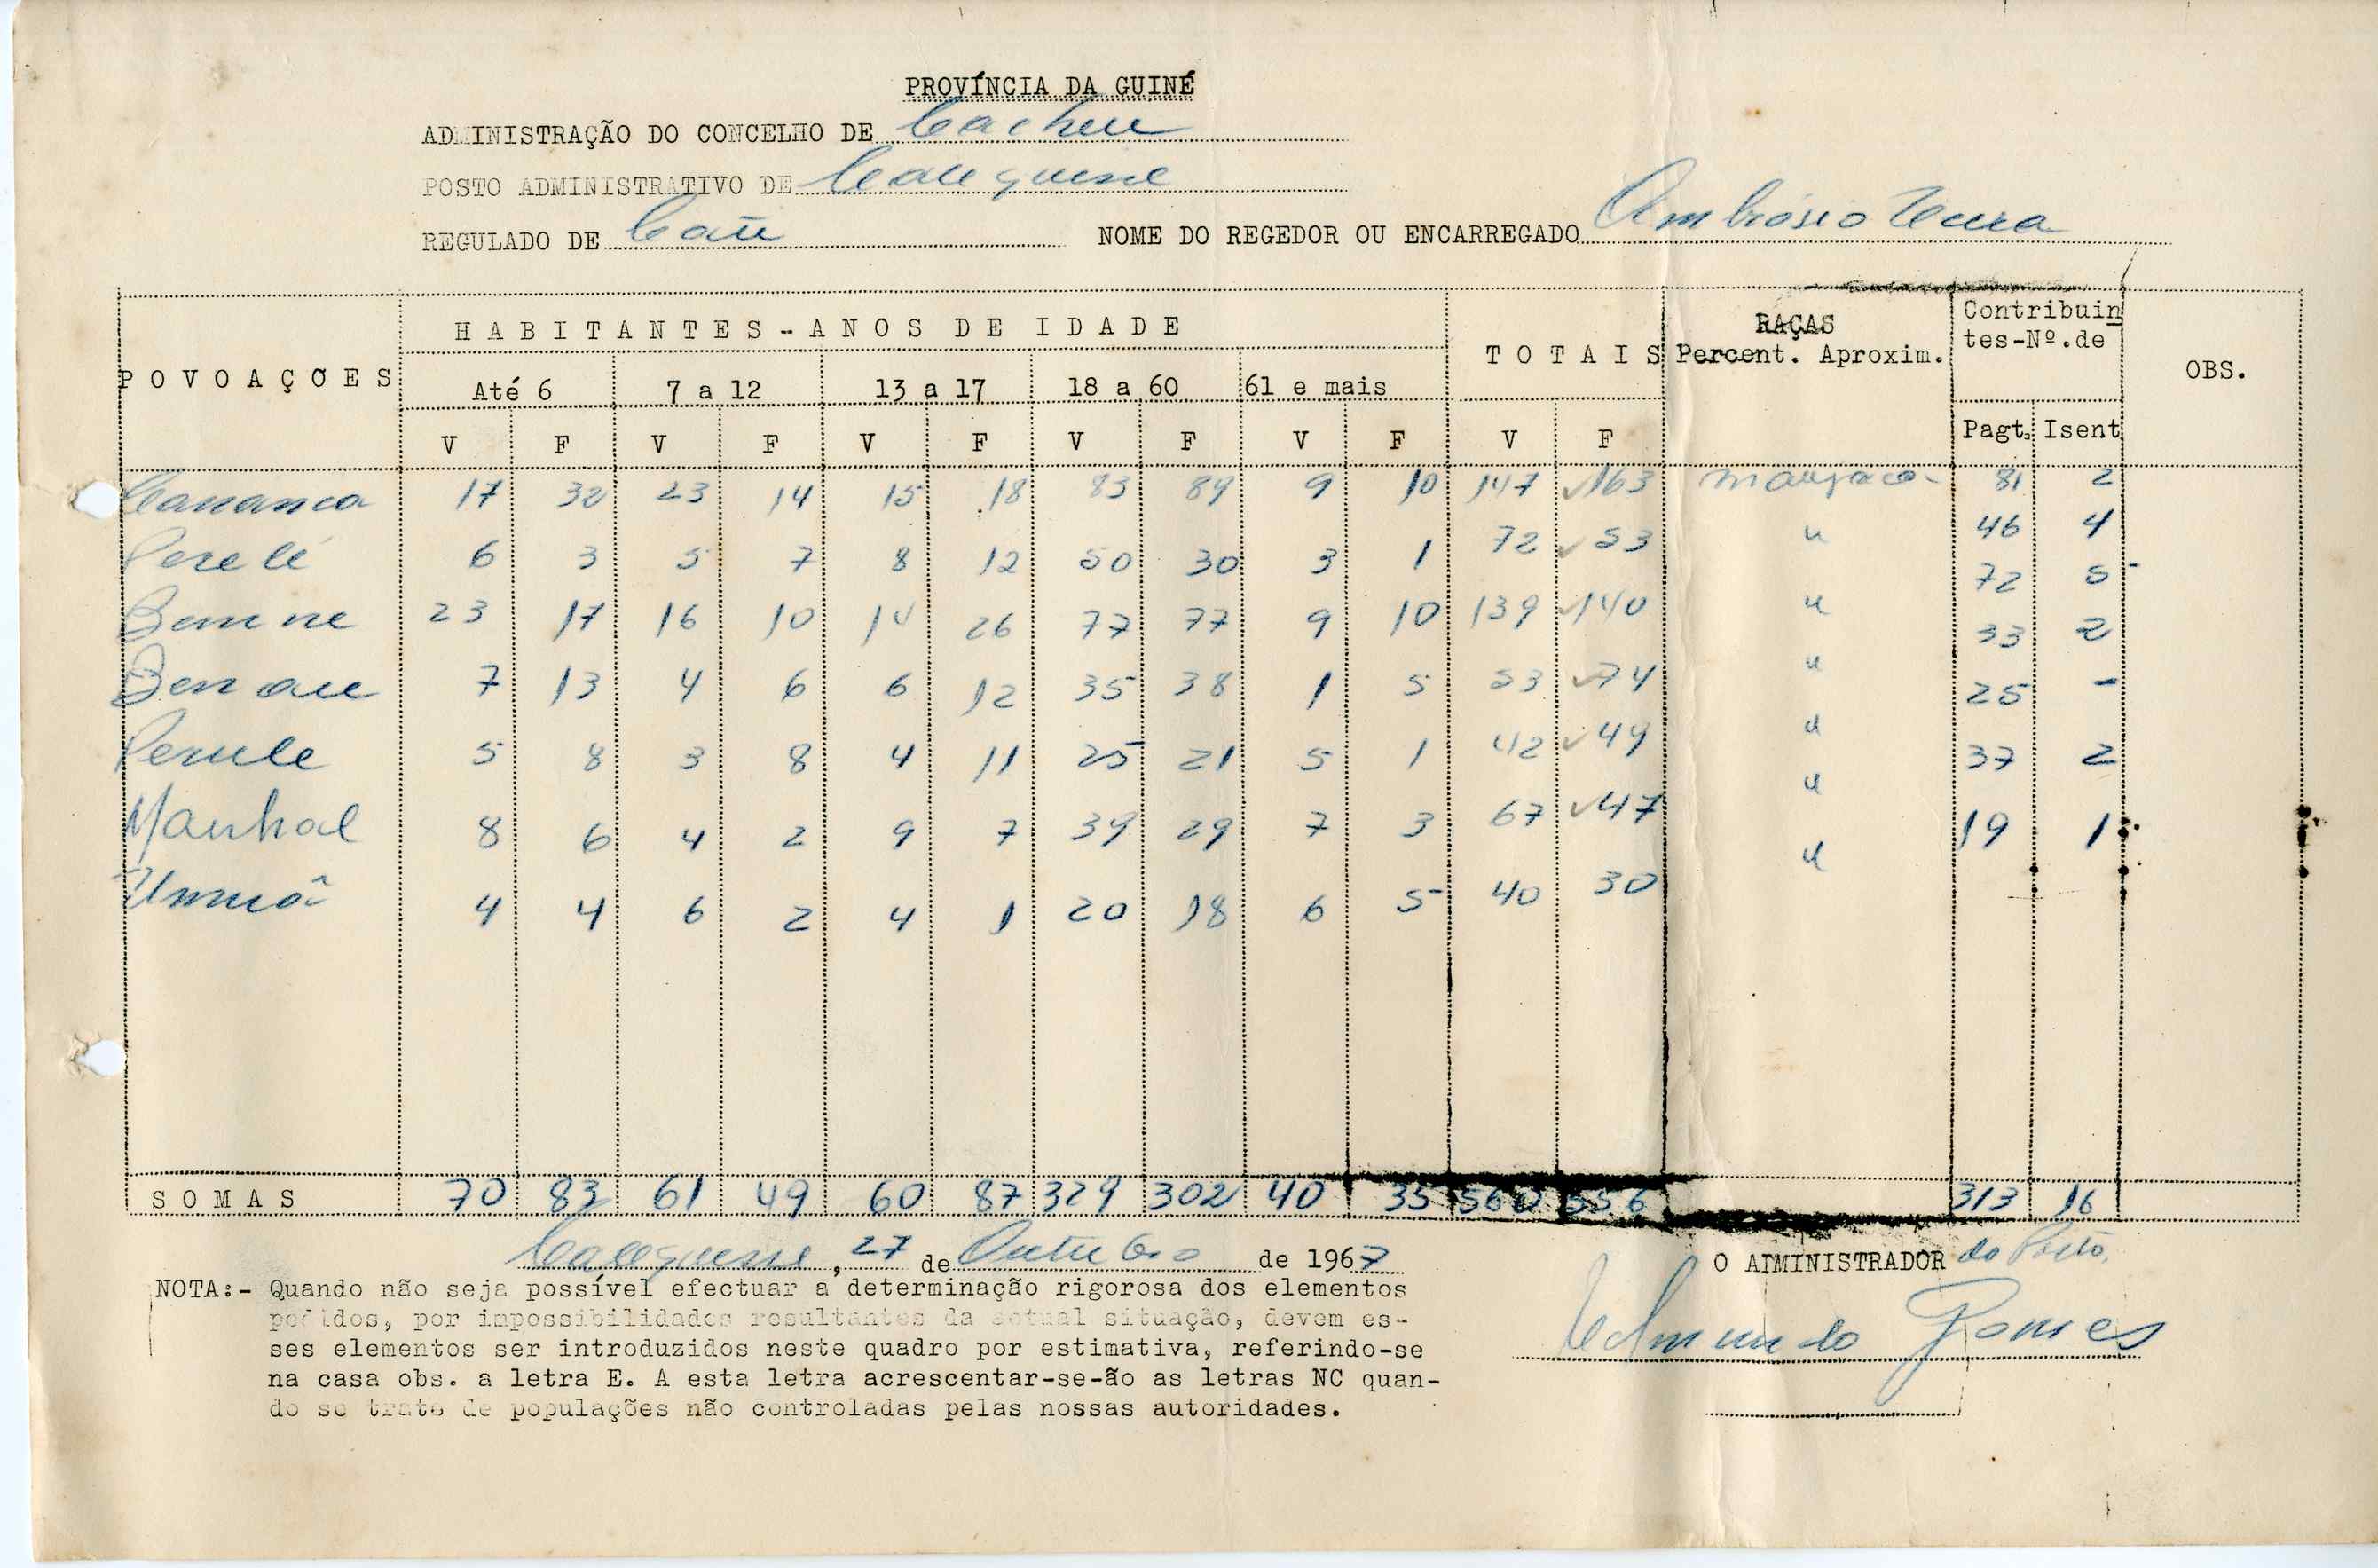 PROVÍNCIA DA GUINÉ
ADMINISTRAÇÃO DO CONCELHO DE Cacheu
POSTO ADMINISTRATIVO DE Calequisse
REGULADO DE Caiú NOME DO REGEDOR OU ENCARREGADO Ambrósio
POVOAÇÕES HABITANTES - ANOS DE IDADE TOTAIS RAÇAS Percent. Aproxim. Contribuin tes-Nº.de OBS.
Até 6 7 a 12 13 a 17 18 a 60 61 e mais
V F V F V F V F V F V F Pagt. Isent
17 32 23 14 15 18 83 89 9 10 147 163 Manjaco 81 2
6 3 5 7 8 12 50 30 3 1 72 53 " 46 4
23 17 16 10 14 26 77 77 9 10 139 140 " 72 5
7 13 4 6 6 12 35 38 1 5 53 74 " 33 2
Perule 5 8 3 8 4 11 25 21 5 1 42 49 " 25 -
Manhal 8 6 4 2 9 7 39 29 7 3 67 47 " 37 2
4 4 6 2 4 1 20 18 6 5 40 30 " 19 1
SOMAS 70 83 61 49 60 87 329 302 40 35 560 556 313 16
Calequisse, 27 de Outubro de 1967
O ADMINISTRADOR do Posto,
NOTA:- Quando não seja possível efectuar a determinação rigorosa dos elementos
pedidos, por impossibilidades resultantes da actual situação, devem es-
ses elementos ser introduzidos neste quadro por estimativa, referindo-se
na casa obs. a letra E. A esta letra acrescentar-se-ão as letras NC quan-
do se trate de populações não controladas pelas nossas autoridades.
Edmundo Gomes